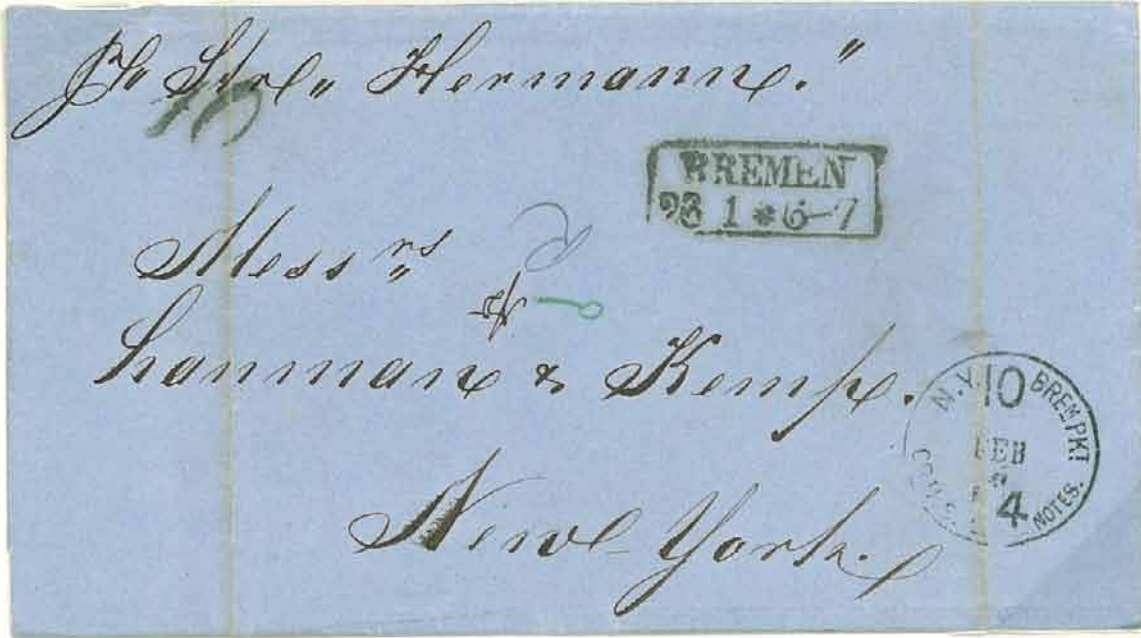 pr Str „Hermann."
10
BREMEN
23 1 * 6-7
Mess rs
Lanman & Kemp.
New-York.
N.Y. 10 BREM PKT
FEB
4
NOTES.